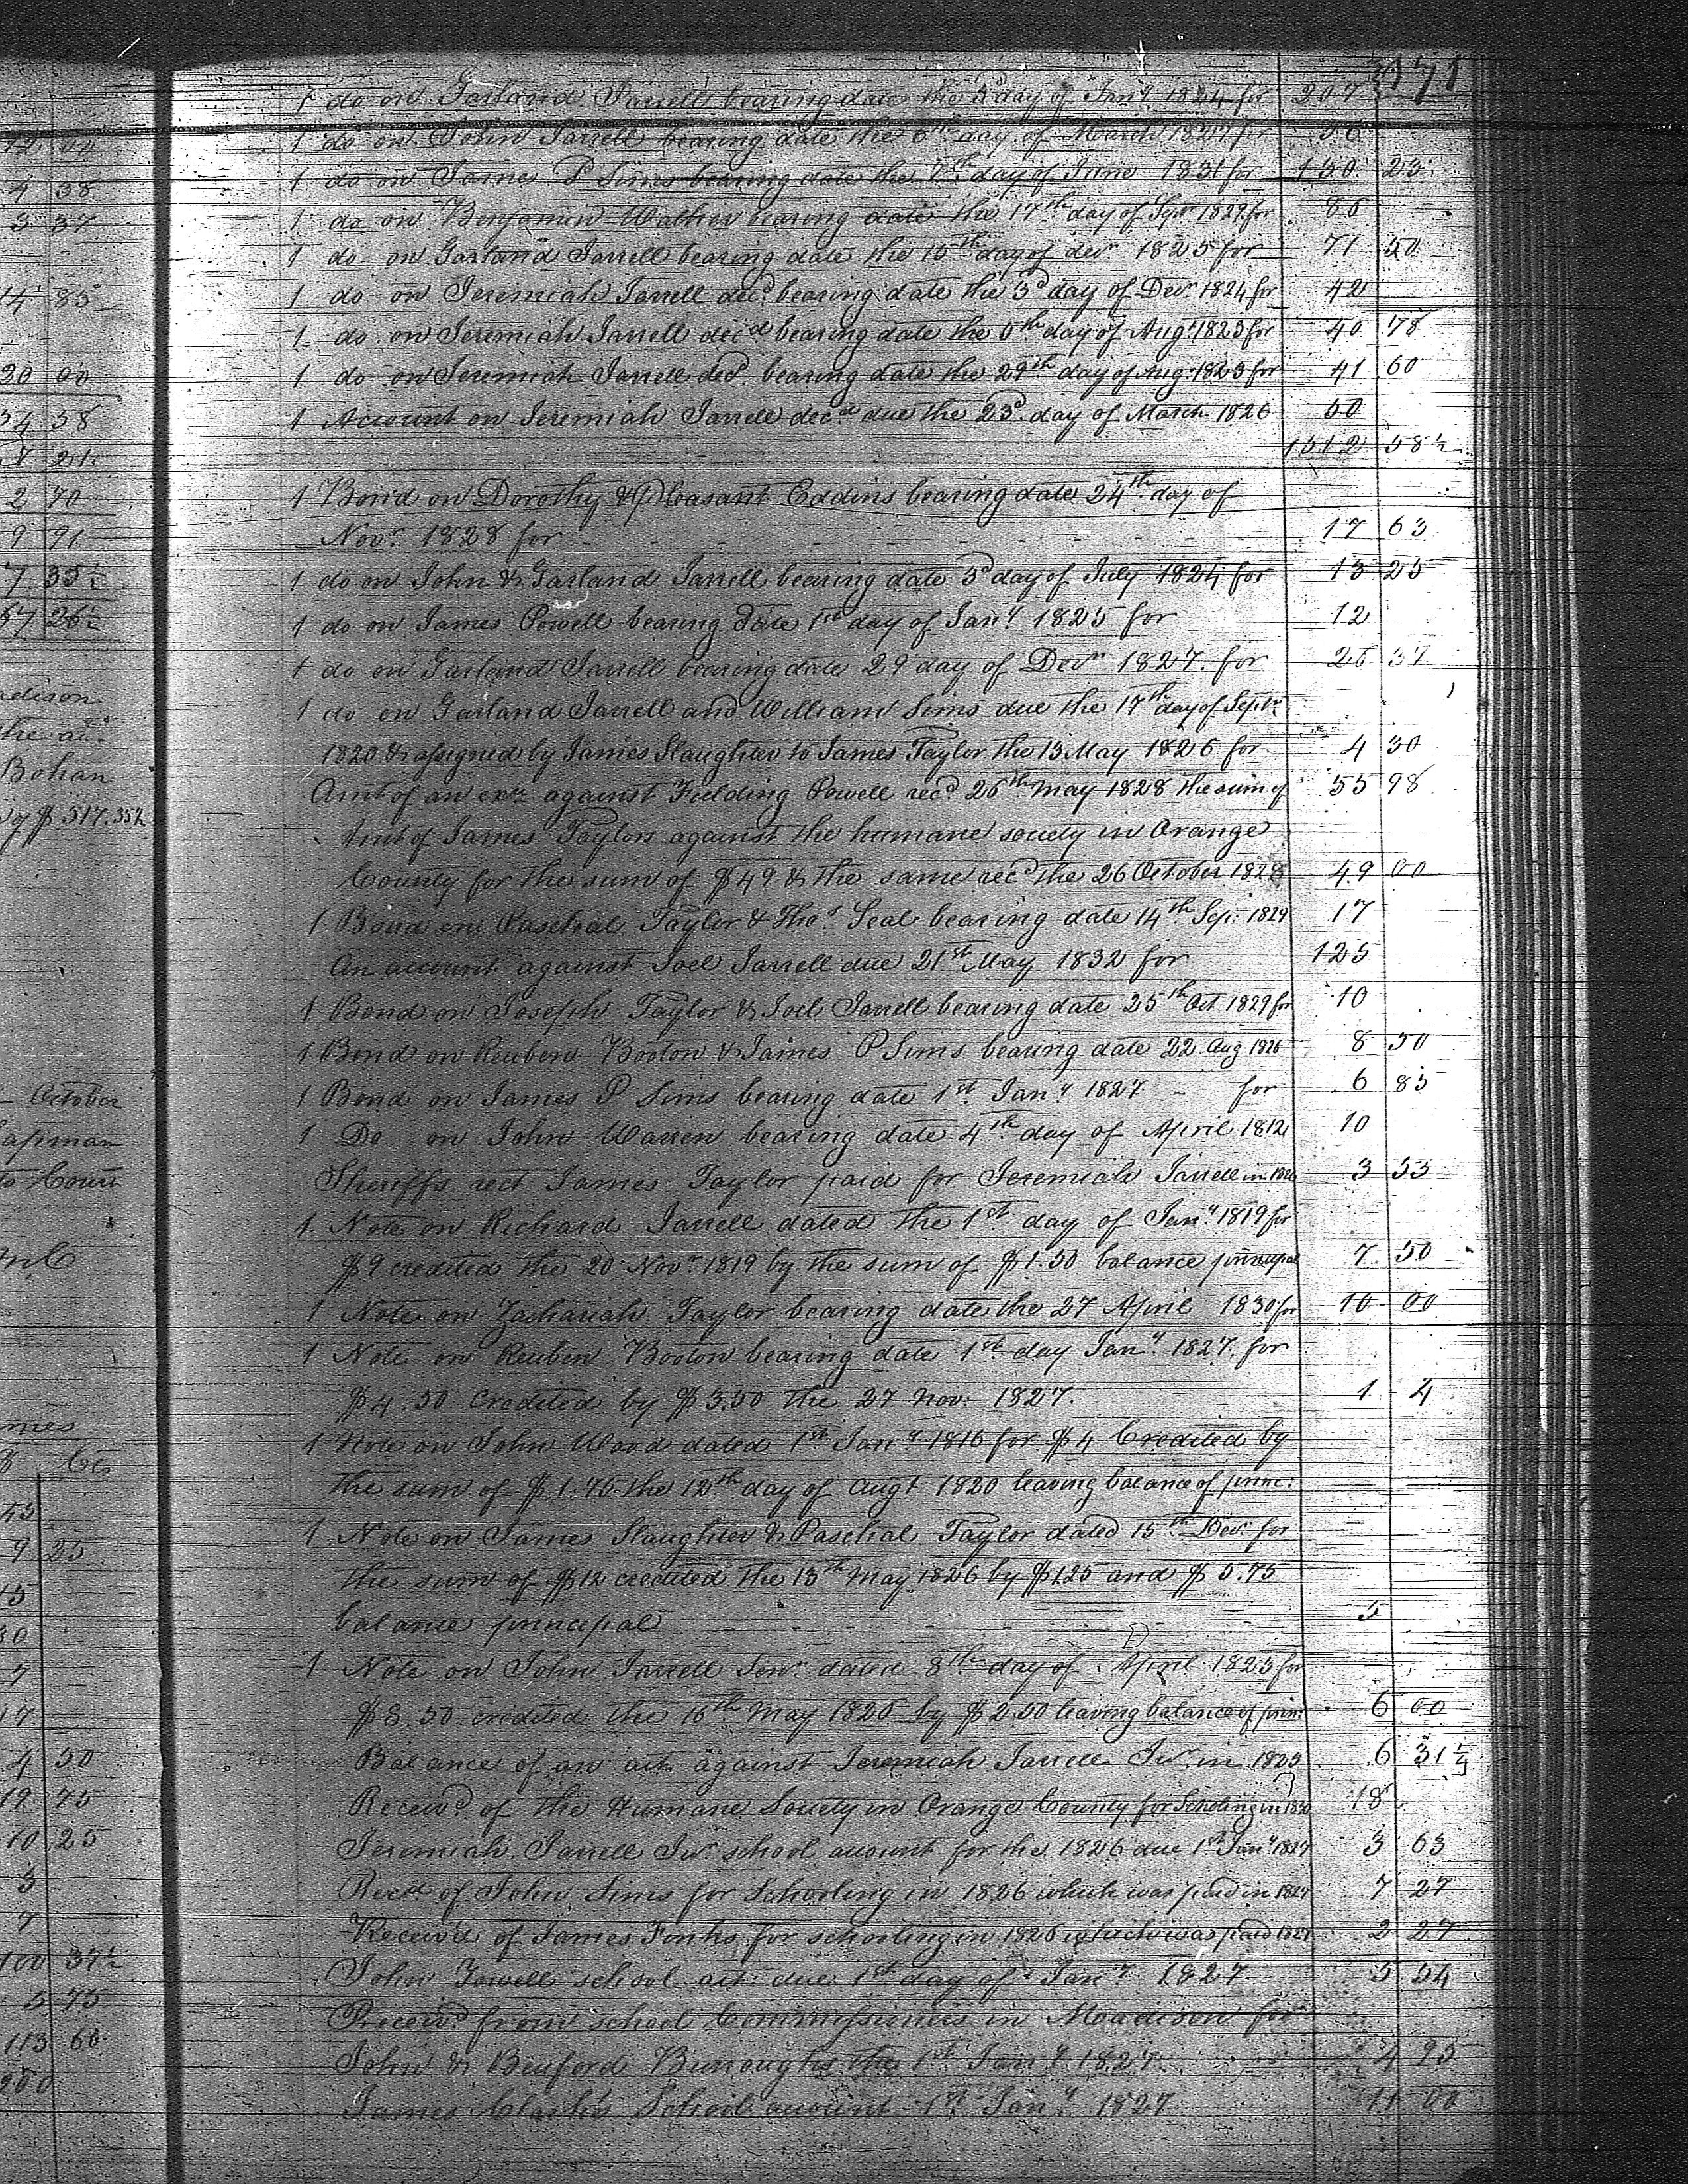 171
12 00
4 38
3 37
14 85
30 00
54 58
7 21
2 70
9 91
7 35½
57 26½
adison
the ac.
Bohan
of $517.35½
October
apman
to Court
mes
$ Cts
45
9 25
15
30
7
17
4 50
19 75
10 25
3
7
100 37½
5 75
113 60
200
1 do on Garland Jarrell bearing date the 3d day of Jany 1824 for 207
1 do on John Jarrell bearing date the 6th day of March for 56
1 do on James P Sims bearing date the day of June 1831 for 130 23
1 do on Benjamin Walker bearing date the 17th day of Sepr 1829 for 86
1 do on Garland Jarrell bearing date the 15th day of decr 1825 for 71 50
1 do on Jeremiah Jarrell decd bearing date the 3d day of Decr 1824 for 42
1 do on Jeremiah Jarrell decd bearing date the 5th day of Augt 1823 for 40 78
1 do on Jeremiah Jarrell decd bearing date the 29th day of Aug: 1823 for 41 60
1 Account on Jeremiah Jarrell decd due the 23d day of March 1826 60
1512 58½
1 Bond on Dorothy & Pleasant Eddins bearing date 24th day of
Novr 1828 for - - - 17 63
1 do on John & Garland Jarrell bearing date 3d day of July 1824 for 13 25
1 do on James Powell bearing date 1st day of Jany 1825 for 12
1 do on Garland Jarrell bearing date 29 day of Decr 1827. for 26 37
1 do on Garland Jarrell and William Sims due the 17th day of Septr
1820 & assigned by James Slaughter to James Taylor the 13 May 1826 for 4 30
Amt of an exn against Fielding Powell recd 26th May 1828 the sum of 55 98
Amt of James Taylors against the humane society in Orange
County for the sum of $49 & the same recd the 26 October 1828 49 00
1 Bond on Paschal Taylor & Thos Seal bearing date 14th Sep: 1829 17
An account against Joel Jarrell due 21st May 1832 for 125
1 Bond on Joseph Taylor & Joel Jarrell bearing date 25th Oct 1829 for 10
1 Bond on Reuben Booton & James P Sims bearing date 22 Aug 1826 8 50
1 Bond on James P Sims bearing date 1st Jany 1827 - for 6 85
1 Do on John Warren bearing date 4th day of April 1812 10
Sheriffs rect James Taylor paid for Jeremiah Jarrell in 3 53
1 Note on Richard Jarrell dated the 1st day of Jany 1819 for
$9 credited the 20 Novr 1819 by the sum of $1.50 balance principal 7 50
1 Note on Zachariah Taylor bearing date the 27 April 1830 for 10 00
1 Note on Reuben Booton bearing date 1st day Jany 1827. for
$4.50 credited by $3.50 the 27 Nov: 1827. 1 4
1 Note on John Wood dated 1st Jany 1816 for $4 Credited by
the sum of $1.75 the 12th day of Augt 1820 leaving balance of princ:
1 Note on James Slaughter & Paschal Taylor dated 15th Decr for
the sum of $12 credited the 13th May 1826 by $1.25 and $5.75
balance principal - - - 5
1 Note on John Jarrell Senr dated 8th day of April 1823 for
$8.50 credited the 16th May 1826 by $2.50 leaving balance of prin: 6 00
Balance of an act against Jeremiah Jarrell Jur in 1823 6 31¼
Receivd of the Humane Society in Orange County for Schooling in 1830 18
Jeremiah Jarrell Jur school account for the 1826 due 1st Jany 1827 3 63
Recd of John Sims for Schooling in 1826 which was paid in 1827 7 27
Receivd of James Finks for schooling in 1826 which was paid 1827 2 27
John Yowell school act due 1st day of Jany 1827. 5 54
Receivd from school Commissioners in Madison for
John & Beuford Burroughs the 1st Jany 1827 4 95
James Clarks School account 1st Jany 1827 11 00